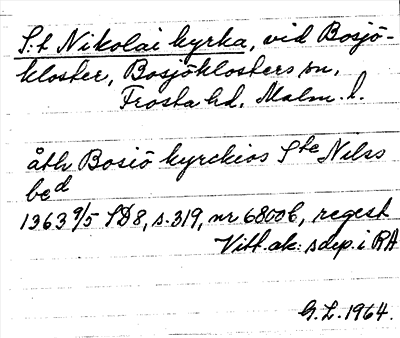 S:t Nikolai kyrka, vid Bosjö-
kloster, Bosjöklosters sn,
Frosta hd, Malm. l.
åth Bosiö kyrckios Ste Nilss
bed
1363 9/5 SD8, s.319, nr 6800b, regest
Vitt.ak: sdep. i RA
G.L. 1964.